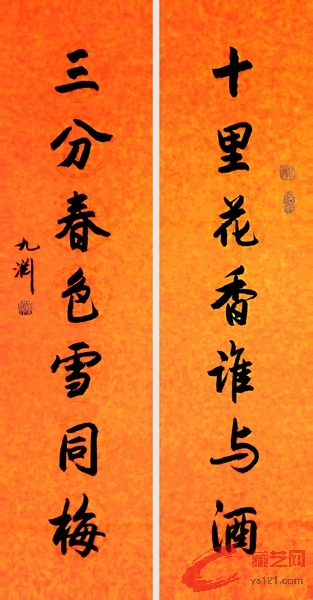 十里花香谁与酒
三分春色雪同梅
九渊
藏艺网
ys121.com